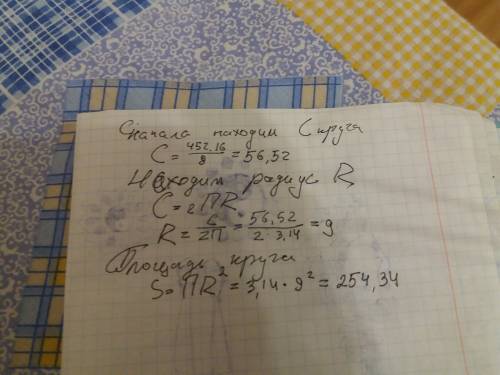 Сначала находим C круга
C = 452,16/8 = 56,52
Находим радиус R
C = 2ПR
R = C/2П = 56,52/2·3,14 = 9
Площадь круга
S = ПR² = 3,14 · 9² = 254,34